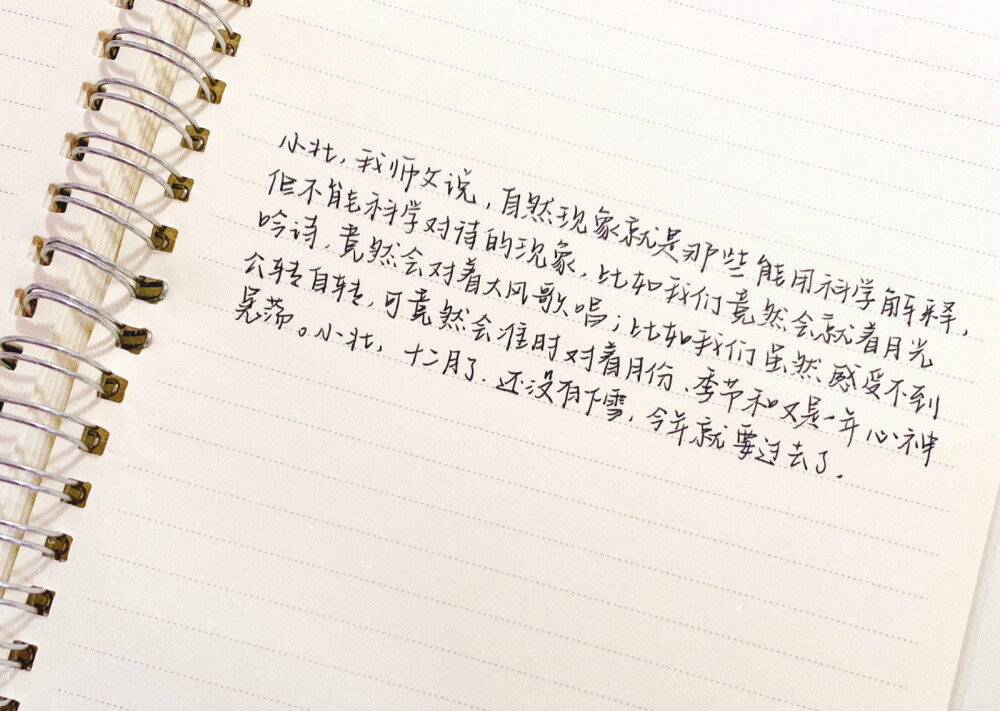 小壮，我师父说，自然现象就是那些能用科学解释，
但不能科学对待的现象，比如我们竟然会就着月光
吟诗，竟然会对着大风歌唱；比如我们虽然感受不到
公转自转，可竟然会准时对着月份、季节和又是一年心神
晃荡。小壮，十二月了，还没有下雪，今年就要过去了.